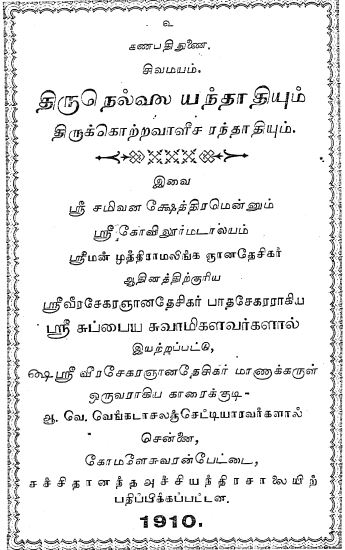 உ
கணபதிதுணை.
சிவமயம்.
திருநெல்லை யந்தாதியும்
திருக்கொற்றவாளீச ரந்தாதியும்.
இவை
ஸ்ரீ சமிவன க்ஷேத்திரமென்னும்
ஸ்ரீ கோவிலூர்மடாலயம்
ஸ்ரீமன் முத்திராமலிங்க ஞானதேசிகர்
ஆதினத்திற்குரிய
ஸ்ரீவீரசேகரஞானதேசிகர் பாதசேகரராகிய
ஸ்ரீ சுப்பைய சுவாமிகளவர்களால்
இயற்றப்பட்டு,
௸ ஸ்ரீ வீரசேகரஞானதேசிகர் மாணாக்கருள்
ஒருவராகிய காரைக்குடி-
ஆ. வெ. வெங்கடாசலஞ்செட்டியாரவர்களால்
சென்னை,
கோமளேசுவரன்பேட்டை,
சச்சிதானந்தஅச்சியந்திரசாலையிற்
பதிப்பிக்கப்பட்டன.
1910.